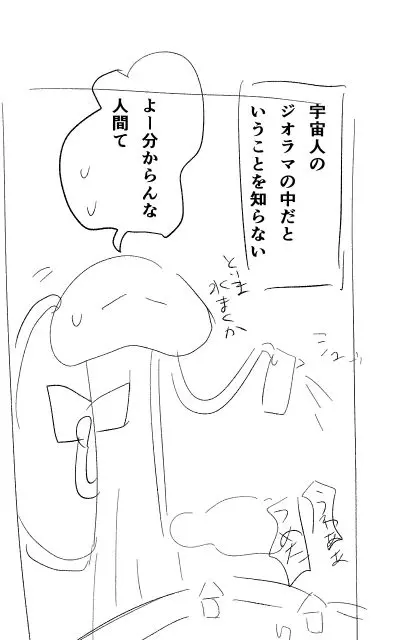 宇宙人の
ジオラマの中だと
いうことを知らない
よー分からんな
人間て
とりま
水まくか
うわぁぁ
つめた